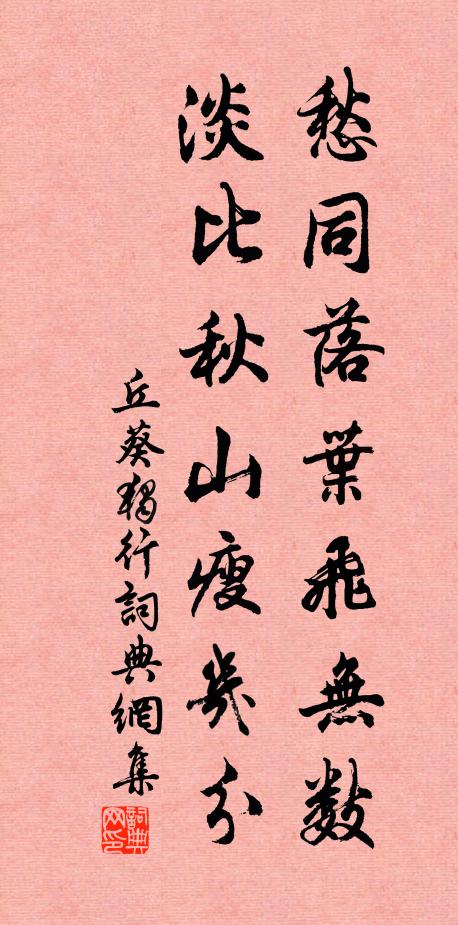 愁同落葉飛無數
淡比秋山瘦幾分
丘葵獨行詞典網集
詞典
网印